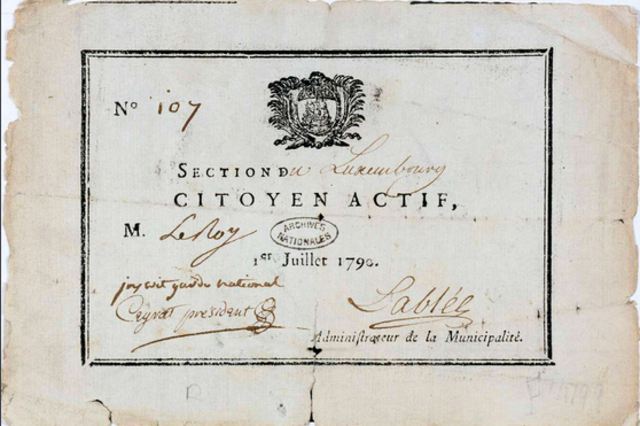 No 107
SECTION Du Luxembourg
CITOYEN ACTIF,
M. LeRoy
ARCHIVES NATIONALES
1er Juillet 1790.
garde national
president
Lablée
Administrateur de la Municipalité.